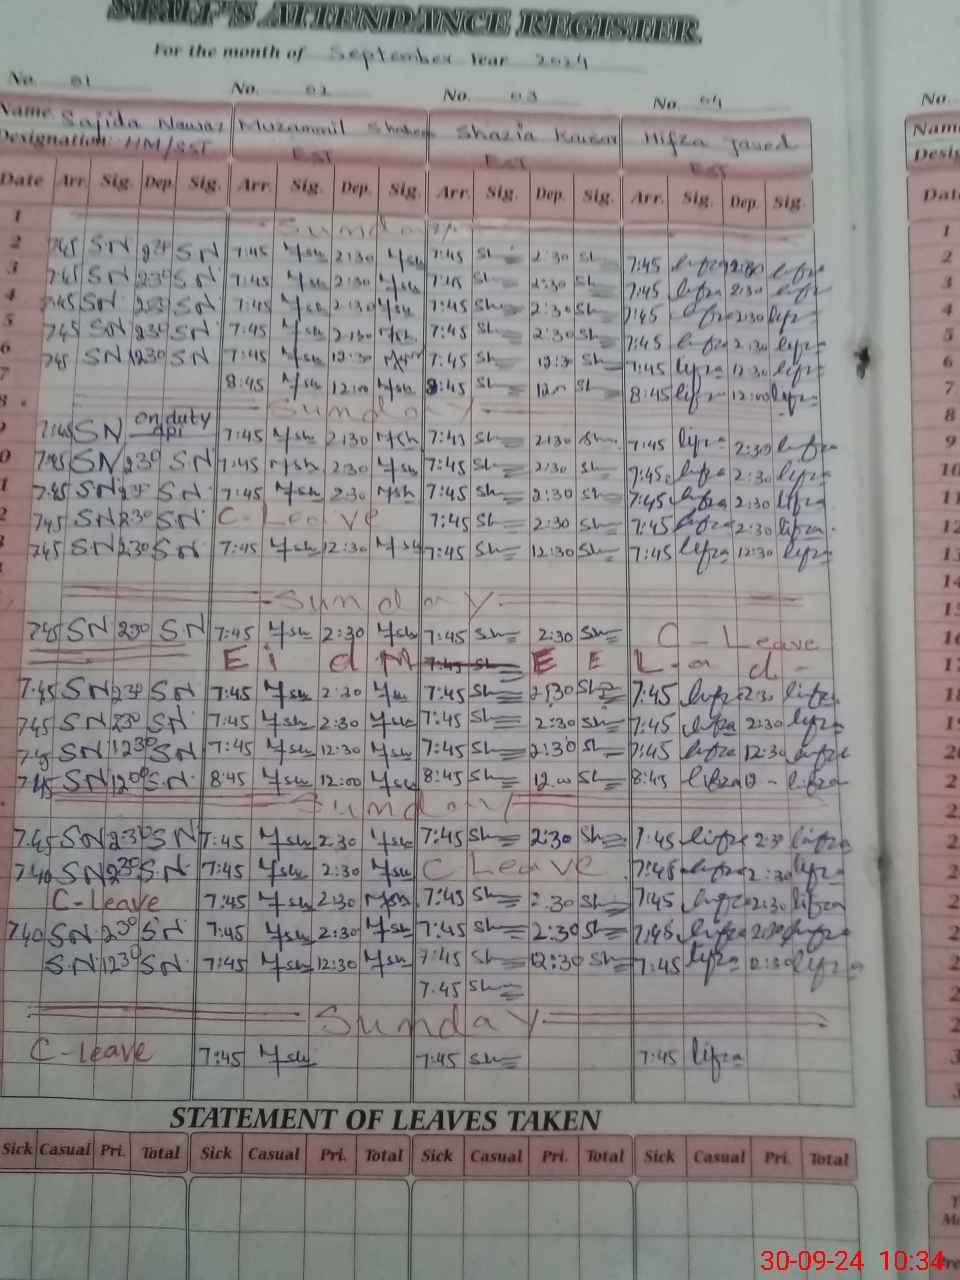 STAFF'S ATTENDANCE REGISTER
For the month of September Year 2024
No. 01 No. 02 No. 03 No. 04 No.
Name Sajida Nawaz Muzammil Shazia Kausar Hifza Javed Name
Designation: HM/SST EST EST EST Desig
Date Arr. Sig. Dep. Sig. Arr. Sig. Dep. Sig. Arr. Sig. Dep. Sig. Arr. Sig. Dep. Sig. Dat
1 Sunday 1
2 7:45 SN 230 SN 7:45 Msh 2:30 Msh 7:45 Sh 2:30 Sh 7:45 hifza 2:30 hifza 2
3 7:45 SN 230 SN 7:45 Msh 2:30 Msh 7:45 Sh 2:30 Sh 7:45 hifza 2:30 hifza 3
4 7:45 SN 230 SN 7:45 Msh 2:30 Msh 7:45 Sh 2:30 Sh 7:45 hifza 2:30 hifza 4
5 745 SN 230 SN 7:45 Msh 2:30 Msh 7:45 Sh 2:30 Sh 7:45 hifza 2:30 hifza 5
6 745 SN 1230 SN 7:45 Msh 12:30 Msh 7:45 Sh 12:30 Sh 7:45 hifza 12:30 hifza 6
7 8:45 Msh 12:00 Msh 8:45 Sh 12:00 Sh 8:45 hifza 12:00 hifza 7
8 Sunday 8
7:45 SN on duty 7:45 Msh 2:30 Msh 7:45 Sh 2:30 Sh 7:45 hifza 2:30 hifza 9
0 7:45 SN 230 SN 7:45 Msh 2:30 Msh 7:45 Sh 2:30 Sh 7:45 hifza 2:30 hifza 10
1 7:45 SN 230 SN 7:45 Msh 2:30 Msh 7:45 Sh 2:30 Sh 7:45 hifza 2:30 hifza 11
2 745 SN 230 SN C-Leave 7:45 Sh 2:30 Sh 7:45 hifza 2:30 hifza 12
3 745 SN 230 SN 7:45 Msh 12:30 Msh 7:45 Sh 12:30 Sh 7:45 hifza 12:30 hifza 13
14
Sunday 15
745 SN 230 SN 7:45 Msh 2:30 Msh 7:45 Sh 2:30 Sh C-Leave 16
Eid M 7:45 Sh E E L a d 17
7:45 SN 230 SN 7:45 Msh 2:30 Msh 7:45 Sh 2:30 Sh 7:45 hifza 2:30 hifza 18
745 SN 230 SN 7:45 Msh 2:30 Msh 7:45 Sh 2:30 Sh 7:45 hifza 2:30 hifza 19
7:45 SN 1230 SN 7:45 Msh 12:30 Msh 7:45 Sh 2:30 Sh 7:45 hifza 12:30 hifza 20
7:45 SN 1200 SN 8:45 Msh 12:00 Msh 8:45 Sh 12.00 Sh 8:45 hifza 12 - hifza 2
Sunday 2
7:45 SN 2:30 SN 7:45 Msh 2:30 Msh 7:45 Sh 2:30 Sh 7:45 hifza 2:30 hifza 2
7:40 SN 230 SN 7:45 Msh 2:30 Msh C Leave 7:45 hifza 2:30 hifza 2
C-leave 7:45 Msh 2:30 Msh 7:45 Sh 2:30 Sh 7:45 hifza 2:30 hifza 2
7.40 SN 230 SN 7:45 Msh 2:30 Msh 7:45 Sh 2:30 Sh 7:45 hifza 2:30 hifza 2
SN 1230 SN 7:45 Msh 12:30 Msh 7:45 Sh 12:30 Sh 7:45 hifza 12:30 hifza 2
7.45 Sh 2
Sunday 2
C-leave 7:45 Msh 7:45 Sh 7:45 hifza 3
3
STATEMENT OF LEAVES TAKEN
Sick Casual Pri. Total Sick Casual Pri. Total Sick Casual Pri. Total Sick Casual Pri. Total
30-09-24 10:34